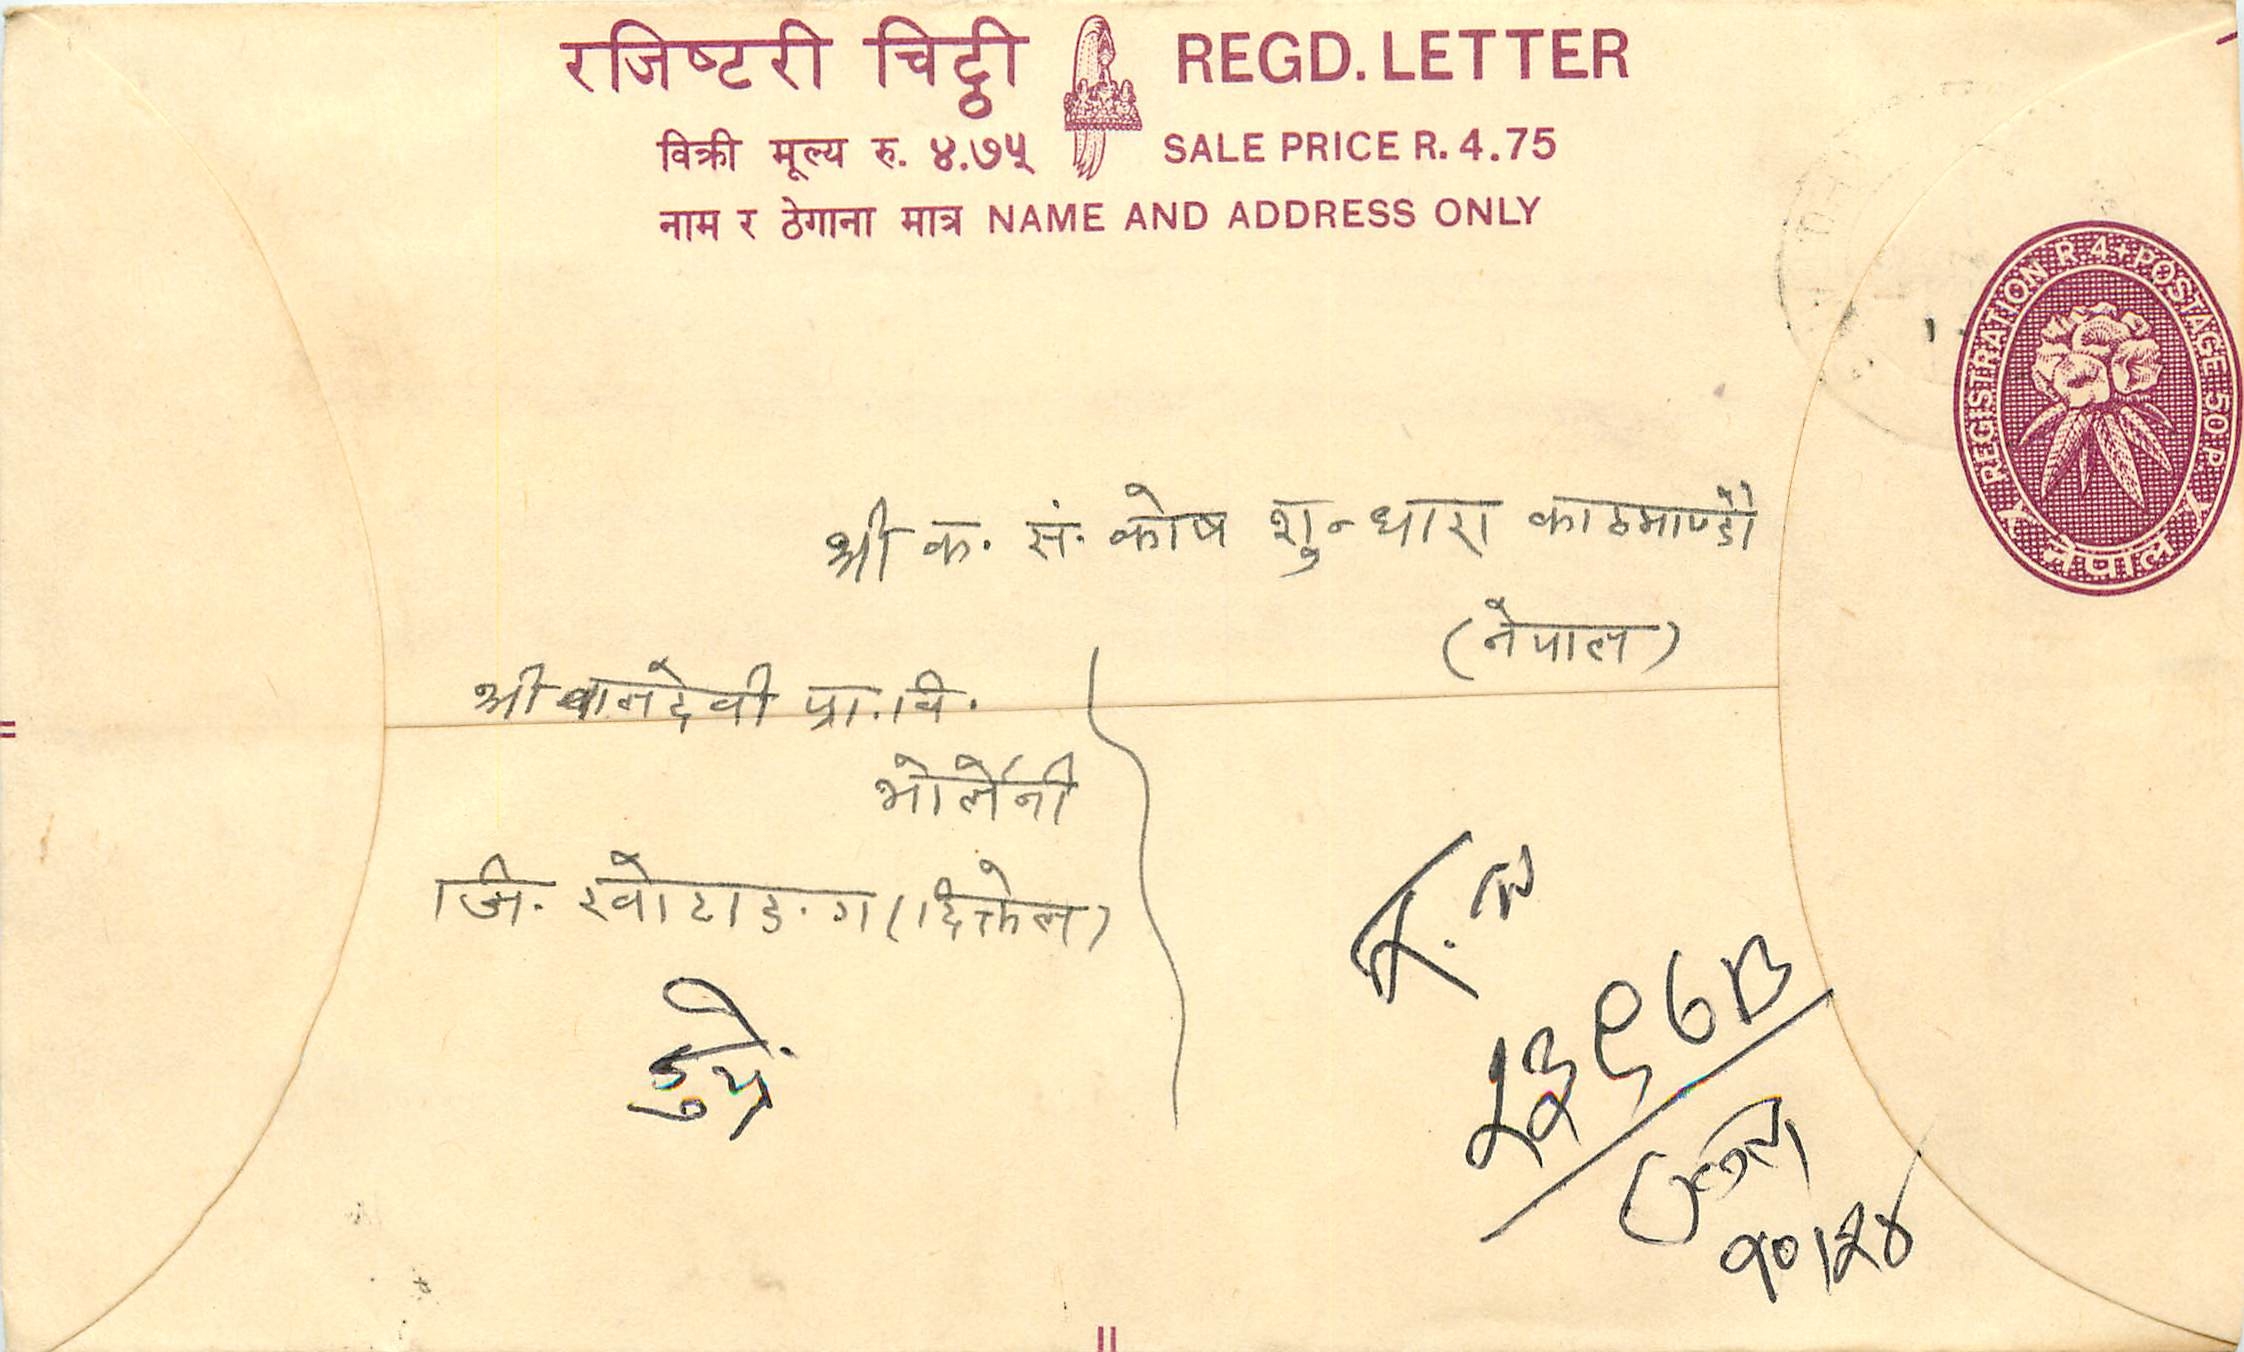 रजिष्टरी चिट्ठी REGD. LETTER
विक्री मूल्य रु. ४.७५ SALE PRICE R. 4.75
नाम र ठेगाना मात्र NAME AND ADDRESS ONLY
REGISTRATION R. 4 + POSTAGE 50 P.
नेपाल
श्री क. सं. कोष शुन्धारा काठमाण्डौ
(नेपाल)
श्री बानदेवी प्रा.वि.
भोर्लेनी
जि. खोटाङ.ग (दिक्तेल)
१०।२४